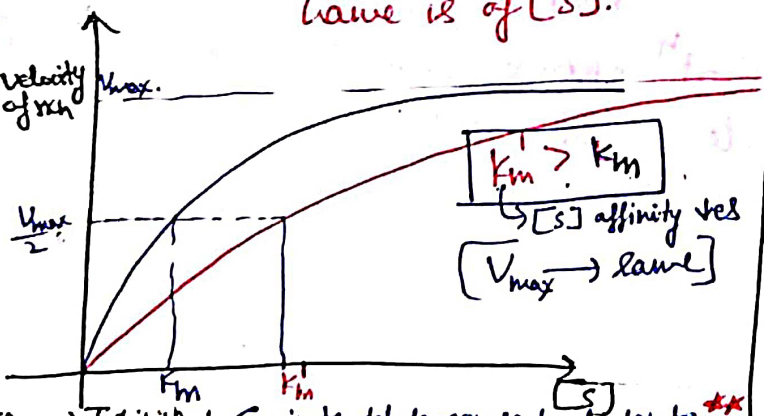 same is of [S].
velocity
of rxn
Vmax.
Vmax
2
Km' > Km
↳ [S] affinity ↓es
[Vmax → same]
Km
Km'
[S]
**